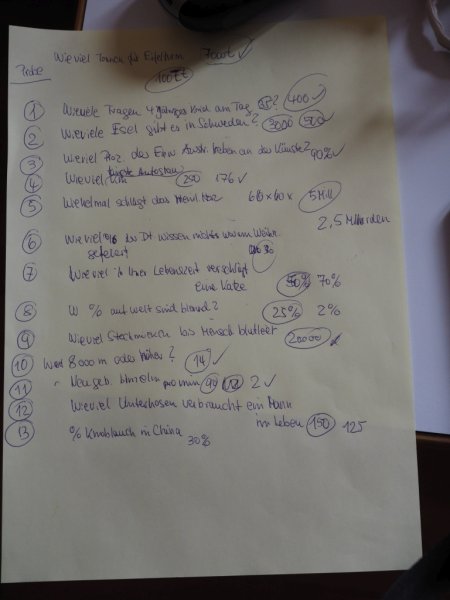 Probe Wieviel Tonnen für Eifelturm 7000t ✓
100 Et
① Wieviele Fragen 4 jähriges Kind am Tag ? 400 ✓
② Wieviele Esel gibt es in Schweden? 3000 500 ✓
③ Wieviel Proz. der Einw. Austr. leben an der Küste? 90% ✓
④ Wieviel km längste Autostau 250 176 ✓
⑤ Wievielmal schlägt das Herz 60 x 60 x 5 Mill
2,5 Milliarden
⑥ Wieviel % der Dt wissen nichts warum Weihn.
gefeiert
⑦ Wieviel % Ihrer Lebenszeit verschläft
Eine Katze 50% 70%
⑧ W % auf Welt sind blond? 25% 2%
⑨ Wieviel Stechmücken bis Mensch blutleer 20000
⑩ 8000 m oder höher? 14 ✓
⑪ " Neugeb. pro min 90 2 ✓
⑫ Wieviel Unterhosen verbraucht ein Mann
im Leben 150 125
⑬ % Knoblauch in China
30%